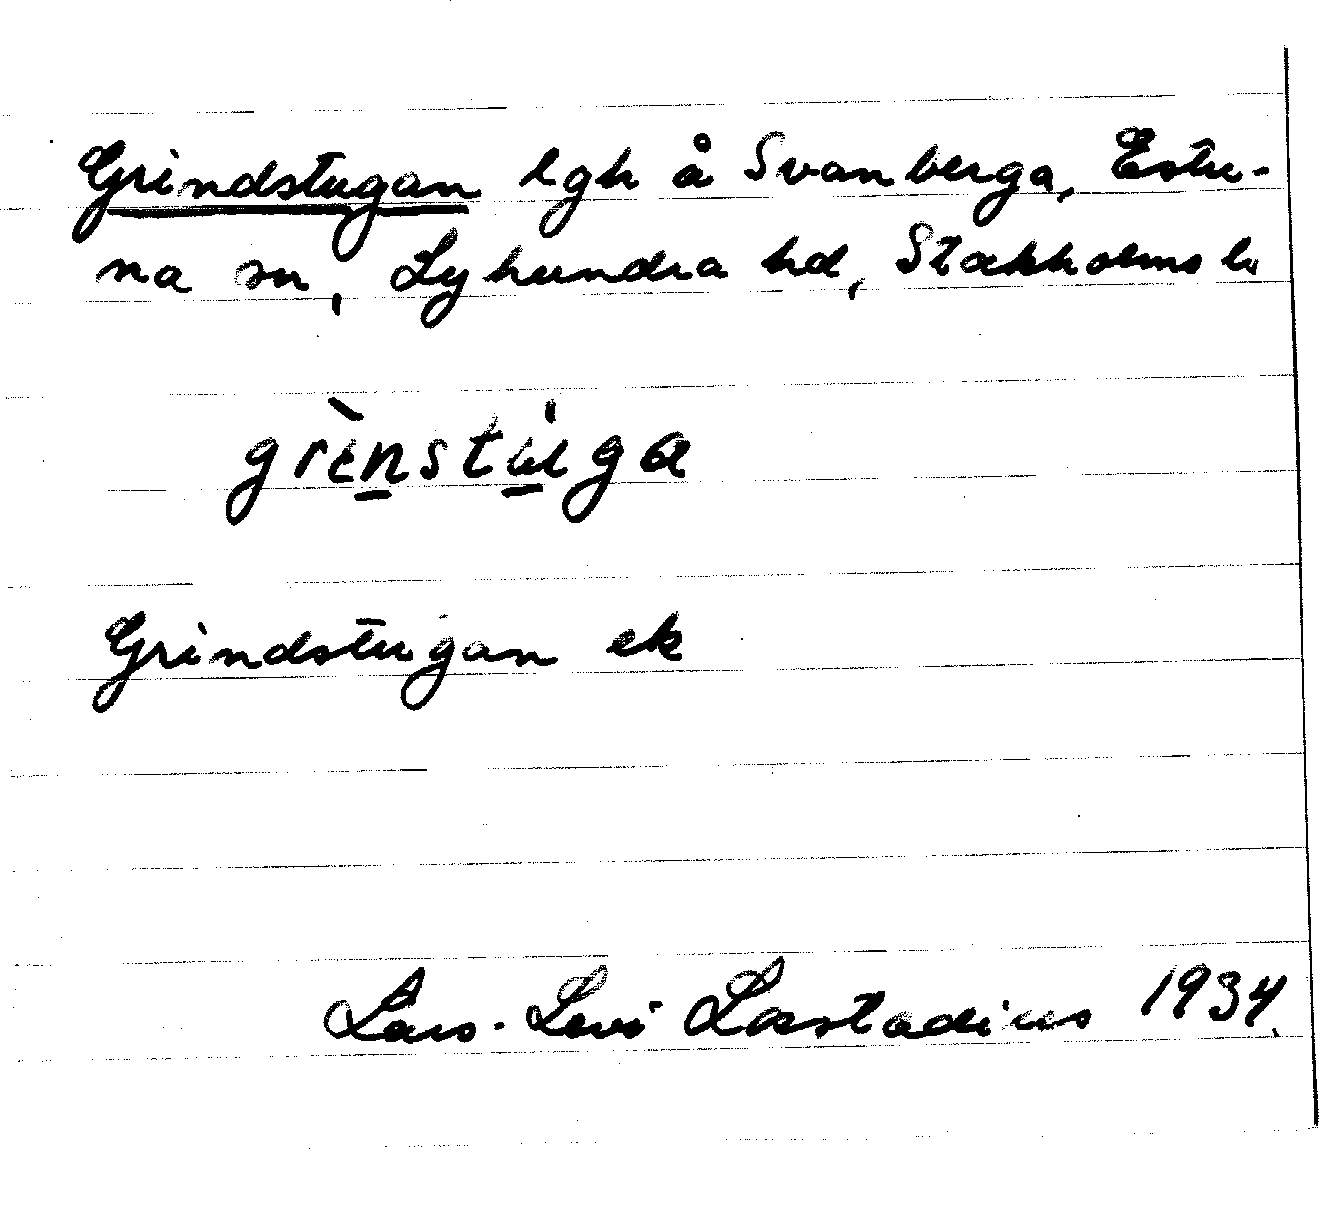 Grindstugan lgh å Svanberga, Estu-
na sn, Lyhundra hd, Stockholms l.
grìn̲stu̲ga
Grindstugan ek
Lars-Levi Læstadius 1934.